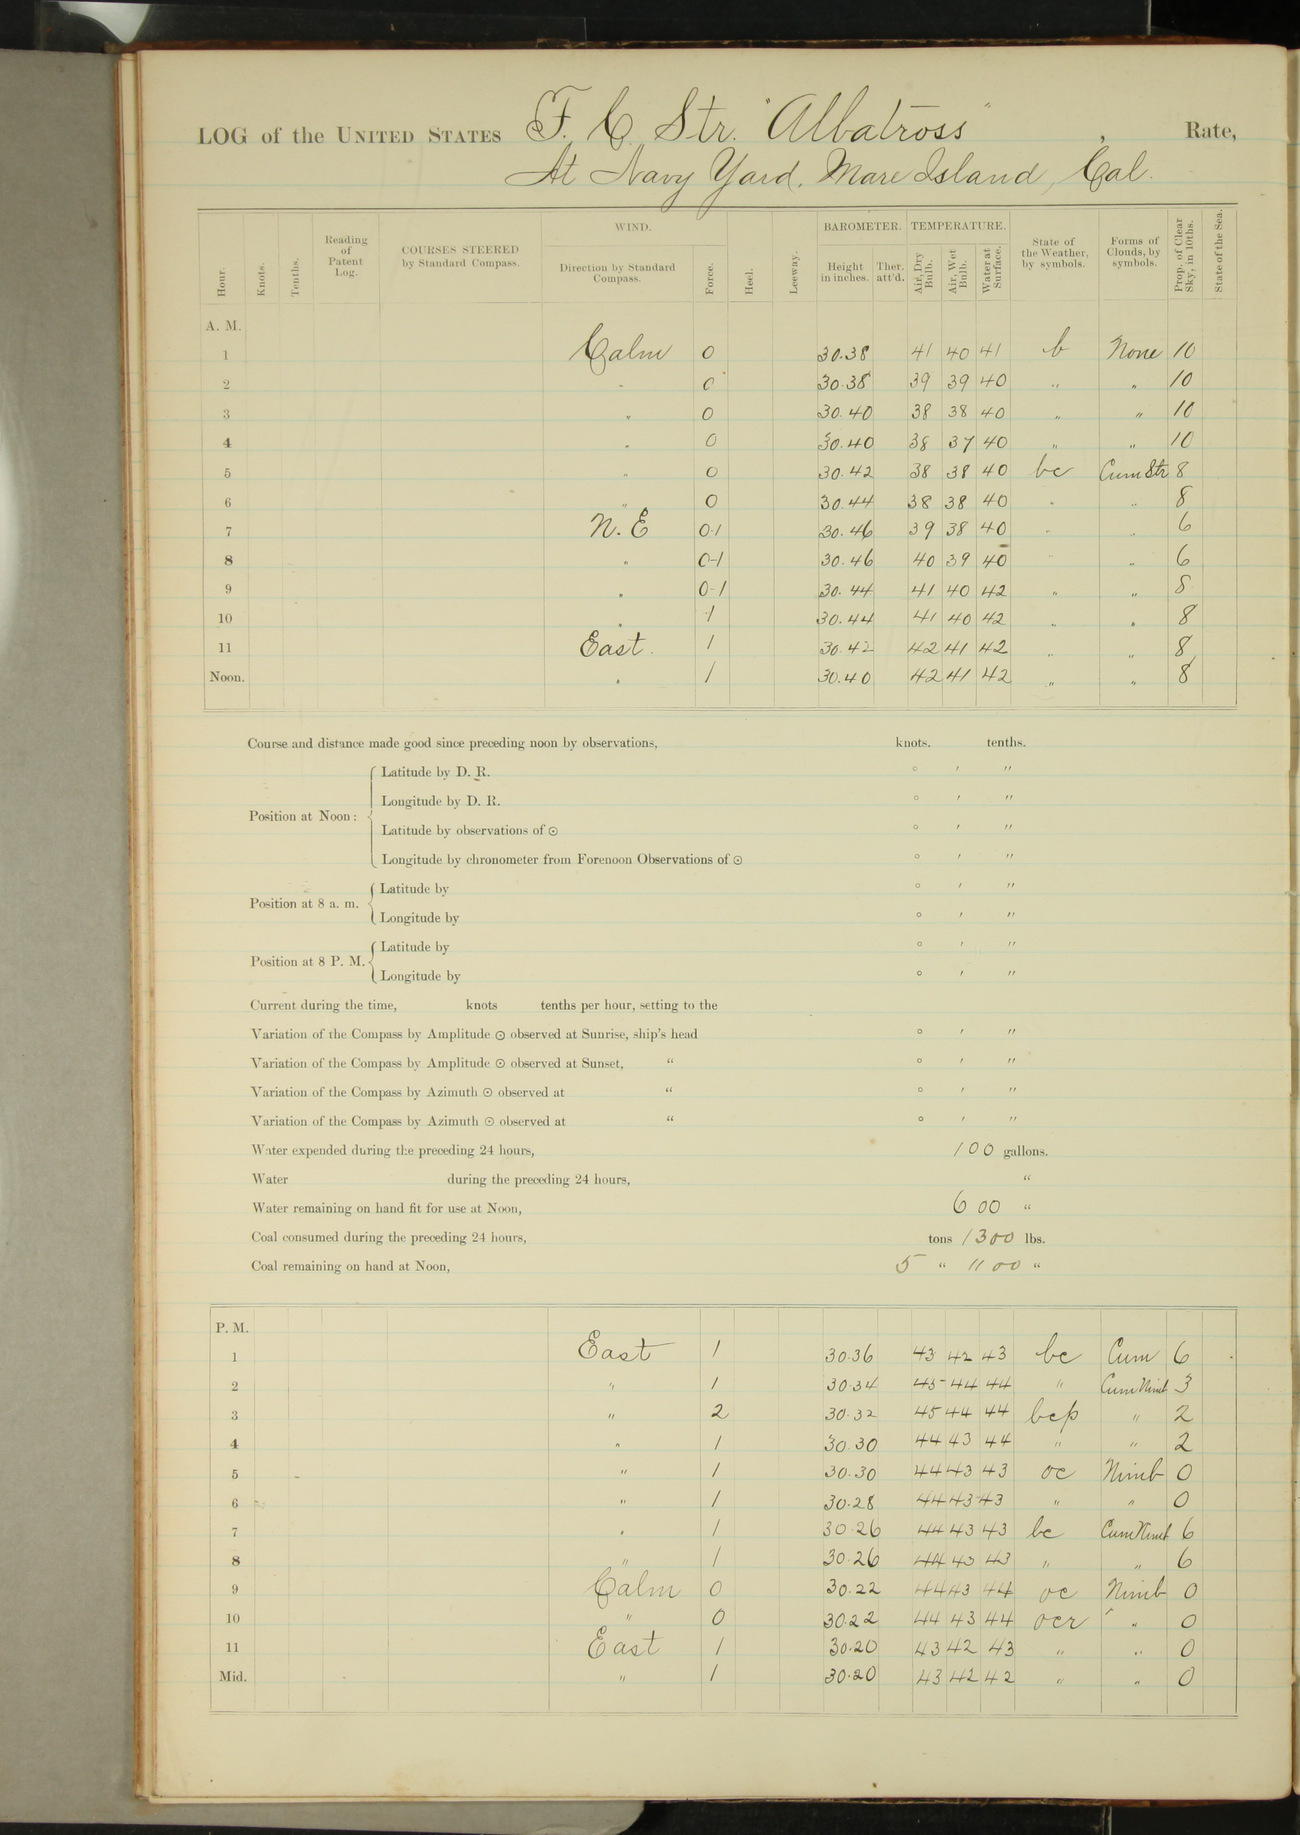 LOG of the UNITED STATES F. C. Str. "Albatross" , Rate,
At Navy Yard, Mare Island, Cal.
Hour. Knots. Tenths. Reading of Patent Log. COURSES STEERED by Standard Compass. WIND. Direction by Standard Compass. Force. Heel. Leeway. BAROMETER. Height in inches. Ther. att'd. TEMPERATURE. Air, Dry Bulb. Air, Wet Bulb. Water at Surface. State of the Weather, by symbols. Forms of Clouds, by symbols. Prop. of Clear Sky, in 10ths. State of the Sea.
A. M.
1 Calm 0 30.38 41 40 41 b None 10
2 " 0 30.38 39 39 40 " " 10
3 " 0 30.40 38 38 40 " " 10
4 " 0 30.40 38 37 40 " " 10
5 " 0 30.42 38 38 40 bc Cum Str 8
6 " 0 30.44 38 38 40 " " 8
7 N. E 0-1 30.46 39 38 40 " " 6
8 " 0-1 30.46 40 39 40 " " 6
9 " 0-1 30.44 41 40 42 " " 8
10 " 1 30.44 41 40 42 " " 8
11 East. 1 30.42 42 41 42 " " 8
Noon. " 1 30.40 42 41 42 " " 8
Course and distance made good since preceding noon by observations, knots. tenths.
Position at Noon: Latitude by D. R. ° ′ ″
Longitude by D. R. ° ′ ″
Latitude by observations of ☉ ° ′ ″
Longitude by chronometer from Forenoon Observations of ☉ ° ′ ″
Position at 8 a. m. Latitude by ° ′ ″
Longitude by ° ′ ″
Position at 8 P. M. Latitude by ° ′ ″
Longitude by ° ′ ″
Current during the time, knots tenths per hour, setting to the
Variation of the Compass by Amplitude ☉ observed at Sunrise, ship's head ° ′ ″
Variation of the Compass by Amplitude ☉ observed at Sunset, " ° ′ ″
Variation of the Compass by Azimuth ☉ observed at " ° ′ ″
Variation of the Compass by Azimuth ☉ observed at " ° ′ ″
Water expended during the preceding 24 hours, 100 gallons.
Water during the preceding 24 hours, "
Water remaining on hand fit for use at Noon, 600 "
Coal consumed during the preceding 24 hours, tons 1300 lbs.
Coal remaining on hand at Noon, 5 " 1100 "
P. M.
1 East 1 30.36 43 42 43 bc Cum 6
2 " 1 30.34 45 44 44 " Cum Nimb 3
3 " 2 30.32 45 44 44 bcp " 2
4 " 1 30.30 44 43 44 " " 2
5 " 1 30.30 44 43 43 oc Nimb 0
6 " 1 30.28 44 43 43 " " 0
7 " 1 30.26 44 43 43 bc Cum Nimb 6
8 " 1 30.26 44 43 43 " " 6
9 Calm 0 30.22 44 43 44 oc Nimb 0
10 " 0 30.22 44 43 44 ocr " 0
11 East 1 30.20 43 42 43 " " 0
Mid. " 1 30.20 43 42 42 " " 0